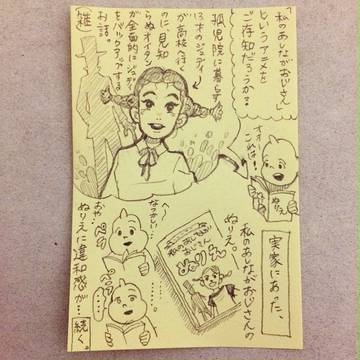 「私のあしながおじさん」
というアニメを
ご存知だろうか?
孤児院に暮らす
13才のジュディ
が高校へ行く
のに見知
らぬオイタン
が全面的にジュディ
をバックアップする
お話。
雑
オオ
これは!
ぬりえ
実家にあった、
私のあしながおじさんの
ぬりえ。
私のあしなが
おじさん
へ〜
なつかしい
ペラ
おや…
ペラ
ぬりえに違和感が…
続く。